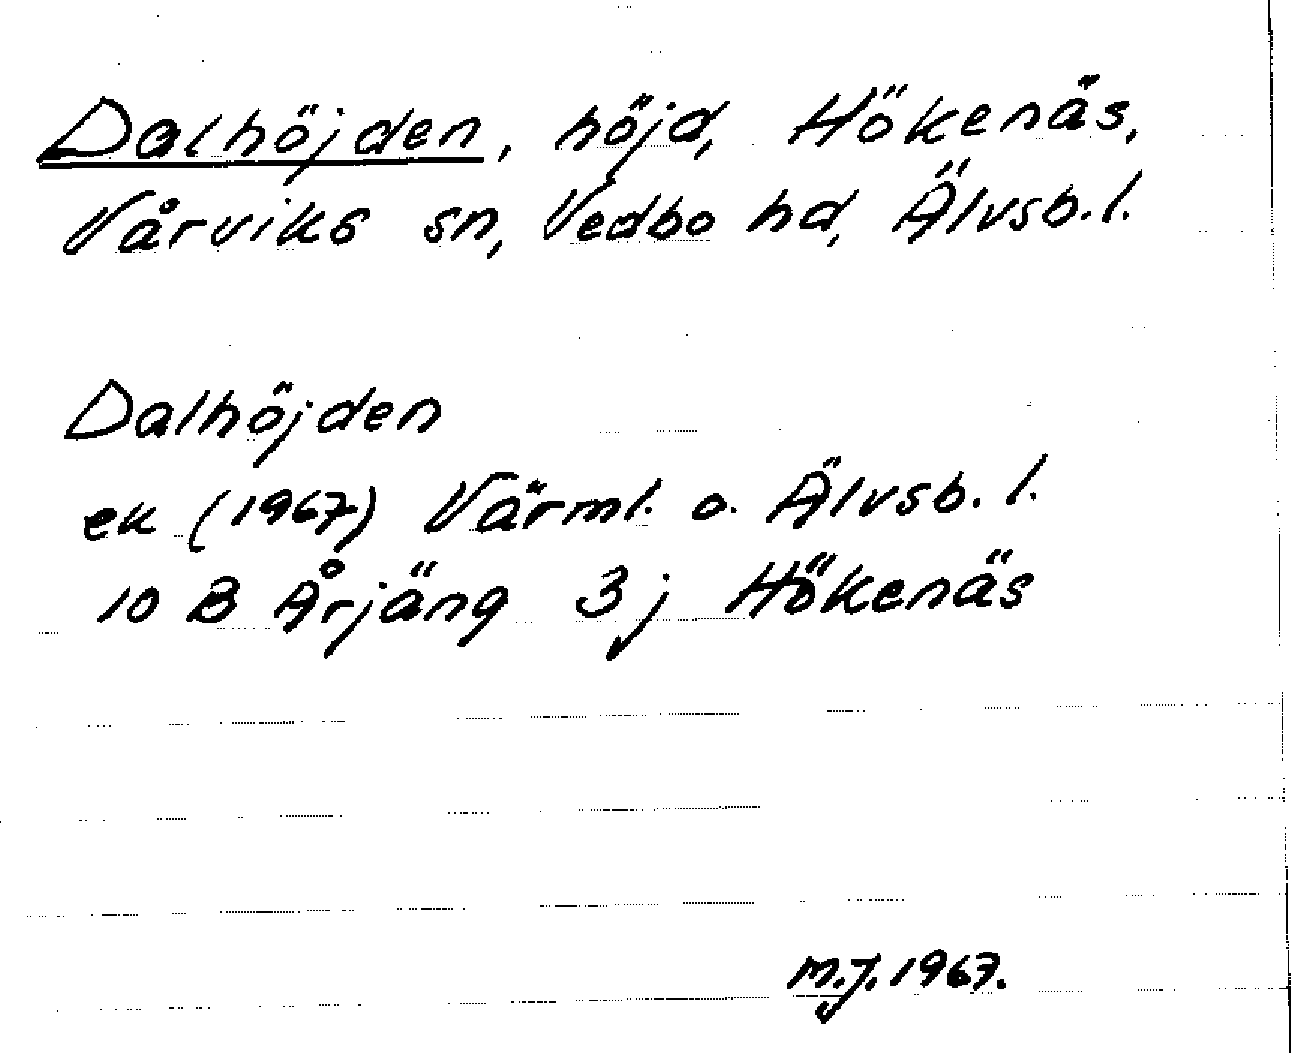 Dalhöjden, höjd, Hökenäs,
Vårviks sn, Vedbo hd, Älvsb. l.
Dalhöjden
ek (1967) Värml. o. Älvsb. l.
10 B Årjäng 3 j Hökenäs
M.J. 1967.